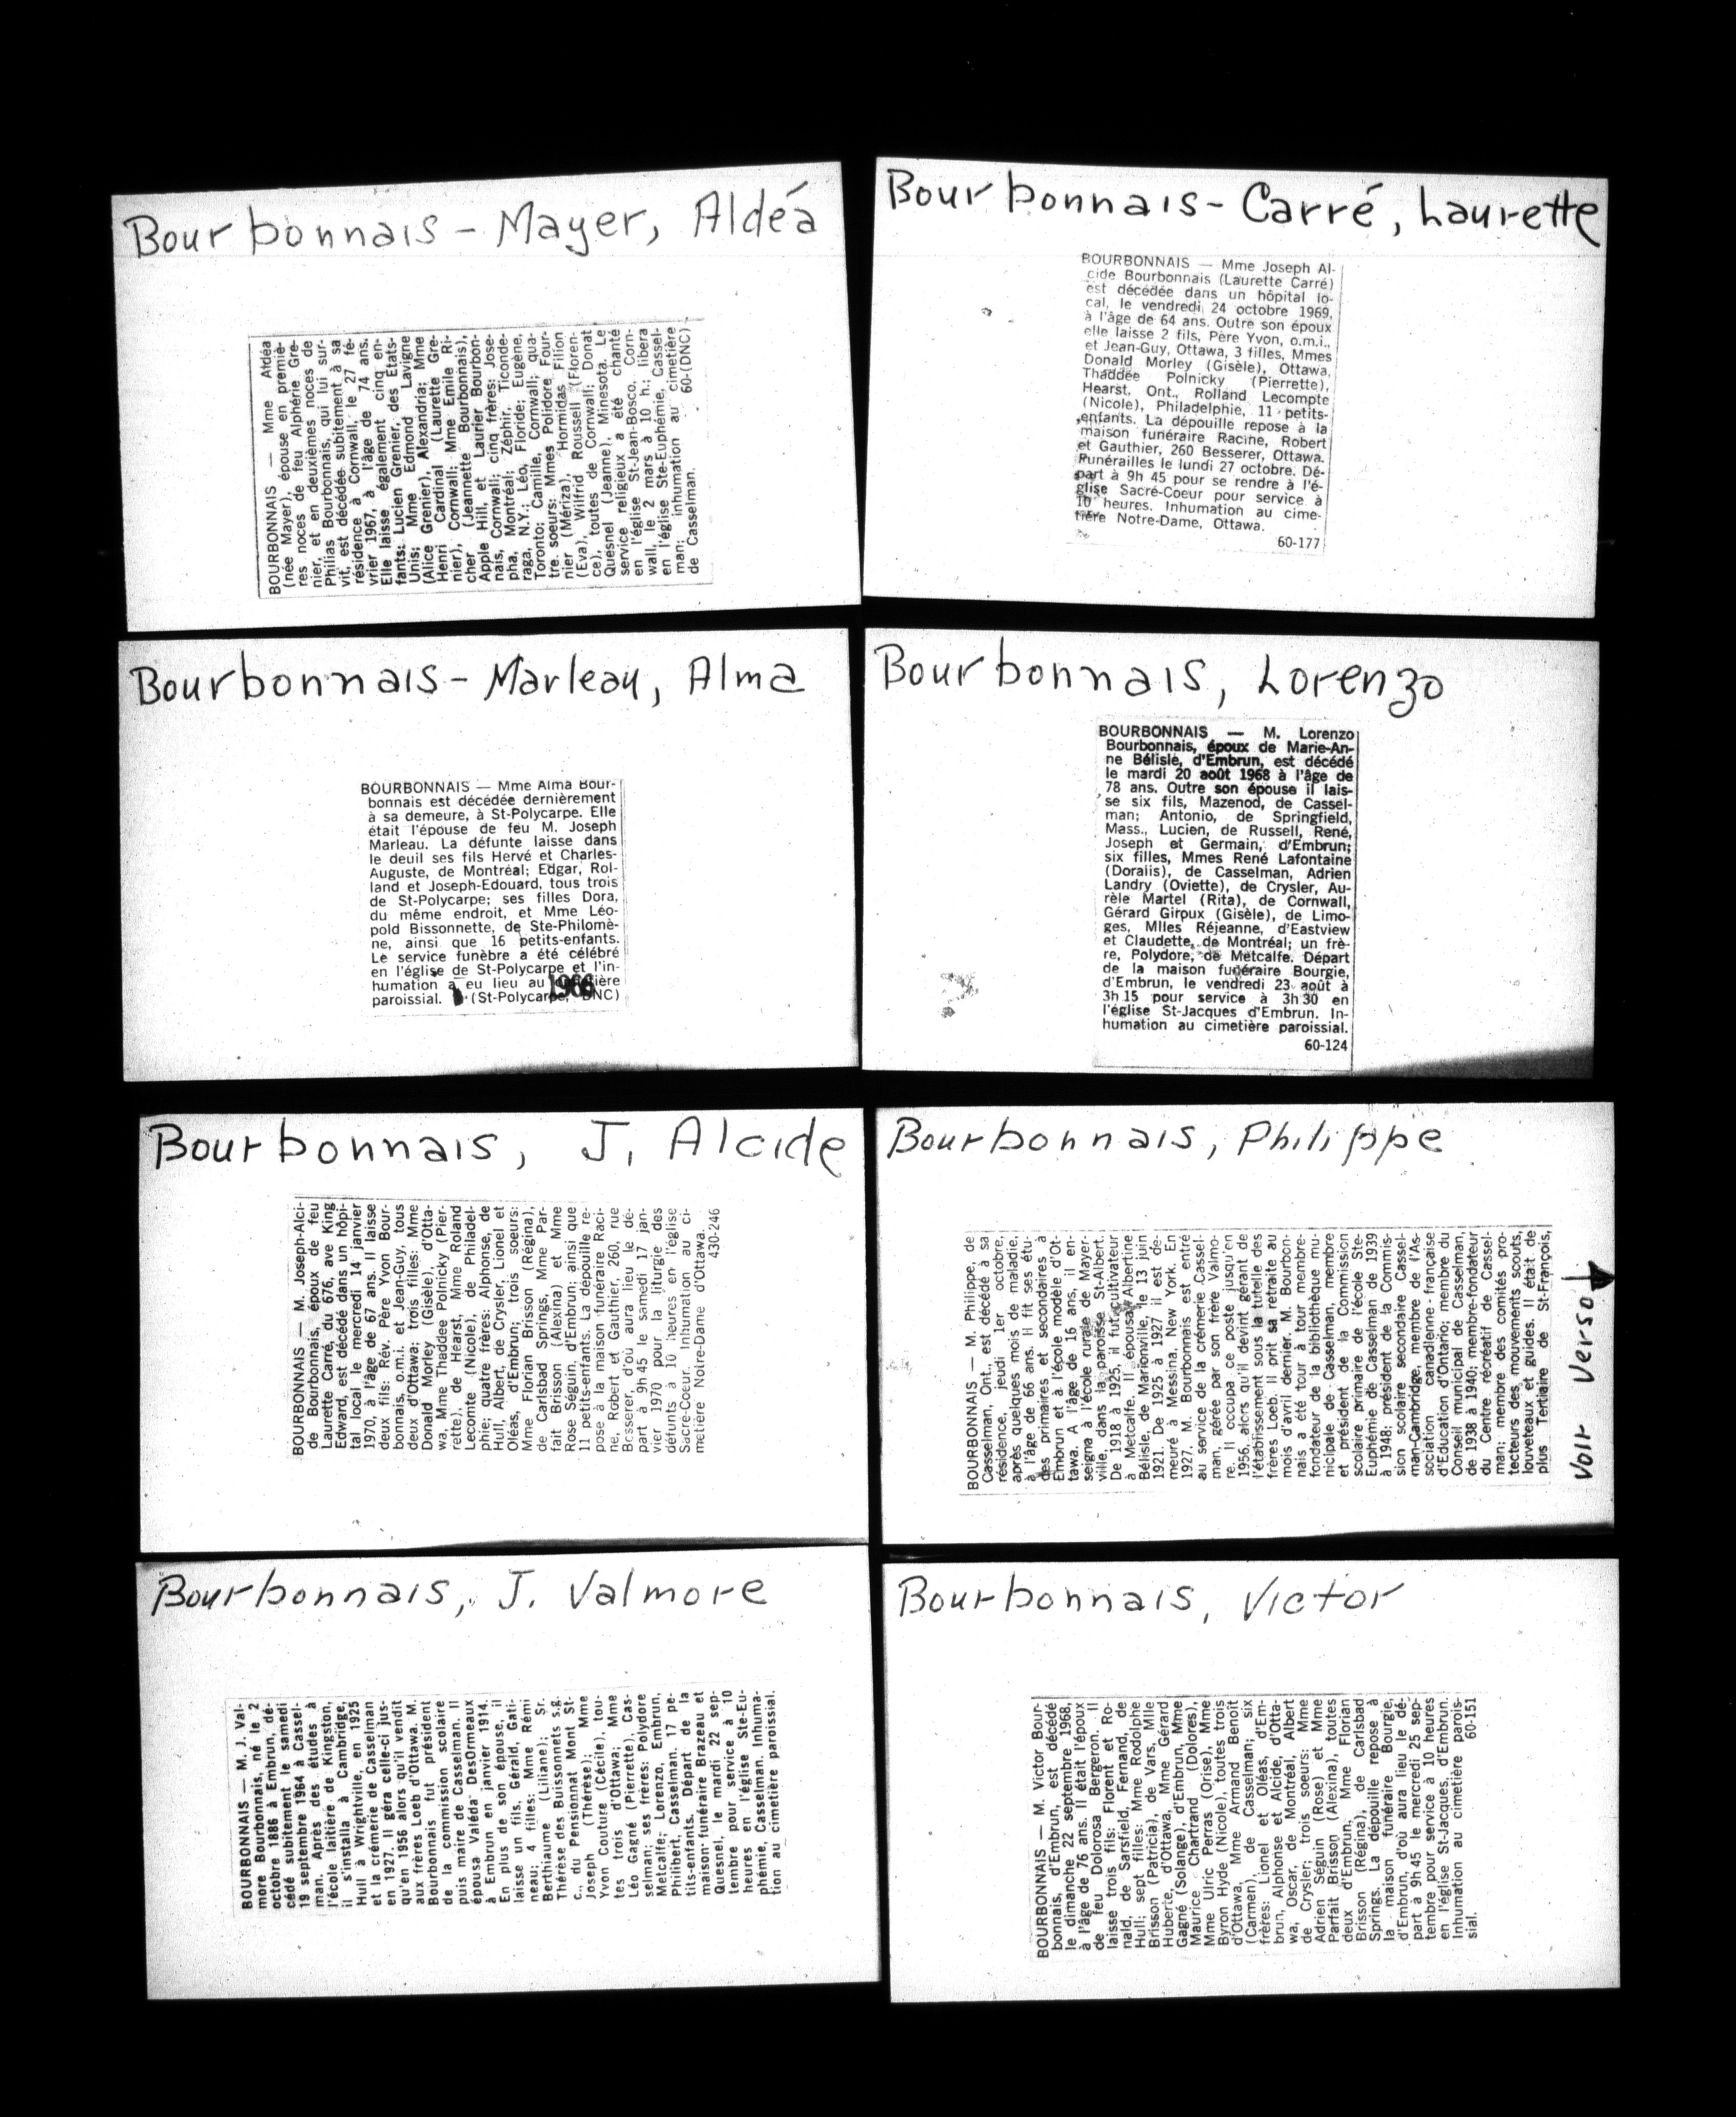 Bourbonnais - Mayer, Aldéa
BOURBONNAIS — Mme Aldéa
(née Mayer), épouse en premiè-
res noces de feu Alphérie Gre-
nier, et en deuxièmes noces de
Philias Bourbonnais, qui lui sur-
vit, est décédée subitement à sa
résidence à Cornwall, le 27 fé-
vrier 1967, à l'âge de 74 ans.
Elle laisse également cinq en-
fants: Lucien Grenier, des Etats-
Unis; Mme Edmond Lavigne
(Alice Grenier), Alexandria; Mme
Henri Cardinal (Laurette Gre-
nier), Cornwall; Mme Emile Ri-
cher (Jeannette Bourbonnais),
Apple Hill, et Laurier Bourbon-
nais, Cornwall; cinq frères: Jose-
pha, Montréal; Zéphir, Ticonde-
raga, N.Y.; Léo, Floride; Eugène,
Toronto; Camille, Cornwall; qua-
tre soeurs: Mmes Polidore Four-
nier (Mériza), Hormidas Filion
(Eva), Wilfrid Roussell (Floren-
ce), toutes de Cornwall; Donat
Quesnel (Jeanne), Minesota. Le
service religieux a été chanté
en l'église St-Jean-Bosco, Corn-
wall, le 2 mars à 10 h.; libera
en l'église Ste-Euphémie, Cassel-
man; inhumation au cimetière
de Casselman. 60-(DNC)
Bourbonnais - Carré, Laurette
BOURBONNAIS — Mme Joseph Al-
cide Bourbonnais (Laurette Carré)
est décédée dans un hôpital lo-
cal, le vendredi 24 octobre 1969,
à l'âge de 64 ans. Outre son époux
elle laisse 2 fils, Père Yvon, o.m.i.,
et Jean-Guy, Ottawa, 3 filles, Mmes
Donald Morley (Gisèle), Ottawa,
Thaddée Polnicky (Pierrette),
Hearst, Ont., Rolland Lecompte
(Nicole), Philadelphie, 11 petits-
enfants. La dépouille repose à la
maison funéraire Racine, Robert
et Gauthier, 260 Besserer, Ottawa.
Funérailles le lundi 27 octobre. Dé-
part à 9h 45 pour se rendre à l'é-
glise Sacré-Coeur pour service à
10 heures. Inhumation au cime-
tière Notre-Dame, Ottawa.
60-177
Bourbonnais - Marleau, Alma
BOURBONNAIS — Mme Alma Bour-
bonnais est décédée dernièrement
à sa demeure, à St-Polycarpe. Elle
était l'épouse de feu M. Joseph
Marleau. La défunte laisse dans
le deuil ses fils Hervé et Charles-
Auguste, de Montréal; Edgar, Rol-
land et Joseph-Edouard, tous trois
de St-Polycarpe; ses filles Dora,
du même endroit, et Mme Léo-
pold Bissonnette, de Ste-Philomè-
ne, ainsi que 16 petits-enfants.
Le service funèbre a été célébré
en l'église de St-Polycarpe et l'in-
humation a eu lieu au cimetière
paroissial. (St-Polycarpe, DNC)
1966
Bourbonnais, Lorenzo
BOURBONNAIS — M. Lorenzo
Bourbonnais, époux de Marie-An-
ne Bélisle, d'Embrun, est décédé
le mardi 20 août 1968 à l'âge de
78 ans. Outre son épouse il lais-
se six fils, Mazenod, de Cassel-
man; Antonio, de Springfield,
Mass., Lucien, de Russell, René,
Joseph et Germain, d'Embrun;
six filles, Mmes René Lafontaine
(Doralis), de Casselman, Adrien
Landry (Oviette), de Crysler, Au-
rèle Martel (Rita), de Cornwall,
Gérard Giroux (Gisèle), de Limo-
ges, Mlles Réjeanne, d'Eastview
et Claudette, de Montréal; un frè-
re, Polydore, de Metcalfe. Départ
de la maison funéraire Bourgie,
d'Embrun, le vendredi 23 août à
3h 15 pour service à 3h 30 en
l'église St-Jacques d'Embrun. In-
humation au cimetière paroissial.
60-124
Bourbonnais, J. Alcide
BOURBONNAIS — M. Joseph-Alci-
de Bourbonnais, époux de feu
Laurette Carré, du 676, ave King
Edward, est décédé dans un hôpi-
tal local le mercredi 14 janvier
1970, à l'âge de 67 ans. Il laisse
deux fils: Rév. Père Yvon Bour-
bonnais, o.m.i. et Jean-Guy, tous
deux d'Ottawa; trois filles: Mme
Donald Morley (Gisèle), d'Otta-
wa, Mme Thaddee Polnicky (Pier-
rette), de Hearst, Mme Roland
Lecomte (Nicole), de Philadel-
phie; quatre frères: Alphonse, de
Hull, Albert, de Crysler, Lionel et
Oléas, d'Embrun; trois soeurs:
Mme Florian Brisson (Régina),
de Carlsbad Springs, Mme Par-
fait Brisson (Alexina) et Mme
Rose Séguin, d'Embrun; ainsi que
11 petits-enfants. La dépouille re-
pose à la maison funéraire Raci-
ne, Robert et Gauthier, 260, rue
Besserer, d'où aura lieu le dé-
part à 9h 45 le samedi 17 jan-
vier 1970 pour la liturgie des
défunts à 10 heures en l'église
Sacre-Coeur. Inhumation au ci-
metière Notre-Dame d'Ottawa.
430-246
Bourbonnais, Philippe
BOURBONNAIS — M. Philippe, de
Casselman, Ont., est décédé à sa
résidence, jeudi 1er octobre,
après quelques mois de maladie,
à l'âge de 66 ans. Il fit ses étu-
des primaires et secondaires à
Embrun et à l'école modèle d'Ot-
tawa. A l'âge de 16 ans, il en-
seigna à l'école rurale de Mayer-
ville, dans la paroisse St-Albert.
De 1918 à 1925, il fut cultivateur
à Metcalfe. Il épousa Albertine
Bélisle, de Marionville, le 13 juin
1921. De 1925 à 1927 il est de-
meuré à Messina, New York. En
1927, M. Bourbonnais est entré
au service de la crèmerie Cassel-
man, gérée par son frère Valmo-
re. Il occupa ce poste jusqu'en
1956, alors qu'il devint gérant de
l'établissement sous la tutelle des
frères Loeb. Il prit sa retraite au
mois d'avril dernier. M. Bourbon-
nais a été tour à tour membre-
fondateur de la bibliothèque mu-
nicipale de Casselman, membre
et président de la Commission
scolaire primaire de l'école Ste-
Euphémie de Casselman de 1939
à 1948; président de la Commis-
sion scolaire secondaire Cassel-
man-Cambridge, membre de l'As-
sociation canadienne-française
d'Education d'Ontario; membre du
Conseil municipal de Casselman,
de 1938 à 1940; membre-fondateur
du Centre récréatif de Cassel-
man; membre des comités pro-
tecteurs des mouvements scouts,
louveteaux et guides. Il était de
plus Tertiaire de St-François,
Voir Verso
Bourbonnais, J. Valmore
BOURBONNAIS — M. J. Val-
more Bourbonnais, né le 2
octobre 1886 à Embrun, dé-
cédé subitement le samedi
19 septembre 1964 à Cassel-
man. Après des études à
l'école laitière de Kingston,
il s'installa à Cambridge,
Hull à Wrightville, en 1925
et la crèmerie de Casselman
en 1927. Il géra celle-ci jus-
qu'en 1956 alors qu'il vendit
aux frères Loeb d'Ottawa. M.
Bourbonnais fut président
de la commission scolaire
puis maire de Casselman. Il
épousa Valéda DesOrmeaux
à Embrun en janvier 1914.
En plus de son épouse, il
laisse un fils, Gérald, Gati-
neau; 4 filles: Mme Rémi
Berthiaume (Liliane); Sr.
Thérèse des Buissonnets s.g.
c., du Pensionnat Mont St-
Joseph (Thérèse); Mme
Yvon Couture (Cécile), tou-
tes trois d'Ottawa; Mme
Léo Gagné (Pierrette), Cas-
selman; ses frères: Polydore
Metcalfe; Lorenzo, Embrun,
Philibert, Casselman. 17 pe-
tits-enfants. Départ de la
maison funéraire Brazeau et
Quesnel, le mardi 22 sep-
tembre pour service à 10
heures en l'église Ste-Eu-
phémie, Casselman. Inhuma-
tion au cimetière paroissial.
Bourbonnais, Victor
BOURBONNAIS — M. Victor Bour-
bonnais, d'Embrun, est décédé
le dimanche 22 septembre 1968,
à l'âge de 76 ans. Il était l'époux
de feu Dolorosa Bergeron. Il
laisse trois fils: Florent et Ro-
nald, de Sarsfield, Fernand, de
Hull; sept filles: Mme Rodolphe
Brisson (Patricia), de Vars, Mlle
Huberte, d'Ottawa, Mme Gérard
Gagné (Solange), d'Embrun, Mme
Maurice Chartrand (Dolores),
Mme Ulric Perras (Orise), Mme
Byron Hyde (Nicole), toutes trois
d'Ottawa, Mme Armand Benoît
(Carmen), de Casselman; six
frères: Lionel et Oléas, d'Em-
brun, Alphonse et Alcide, d'Otta-
wa, Oscar, de Montréal, Albert
de Crysler; trois soeurs: Mme
Adrien Séguin (Rose) et Mme
Parfait Brisson (Alexina), toutes
deux d'Embrun, Mme Florian
Brisson (Régina), de Carlsbad
Springs. La dépouille repose à
la maison funéraire Bourgie,
d'Embrun, d'où aura lieu le dé-
part à 9h 45 le mercredi 25 sep-
tembre pour service à 10 heures
en l'église St-Jacques, d'Embrun.
Inhumation au cimetière parois-
sial. 60-151